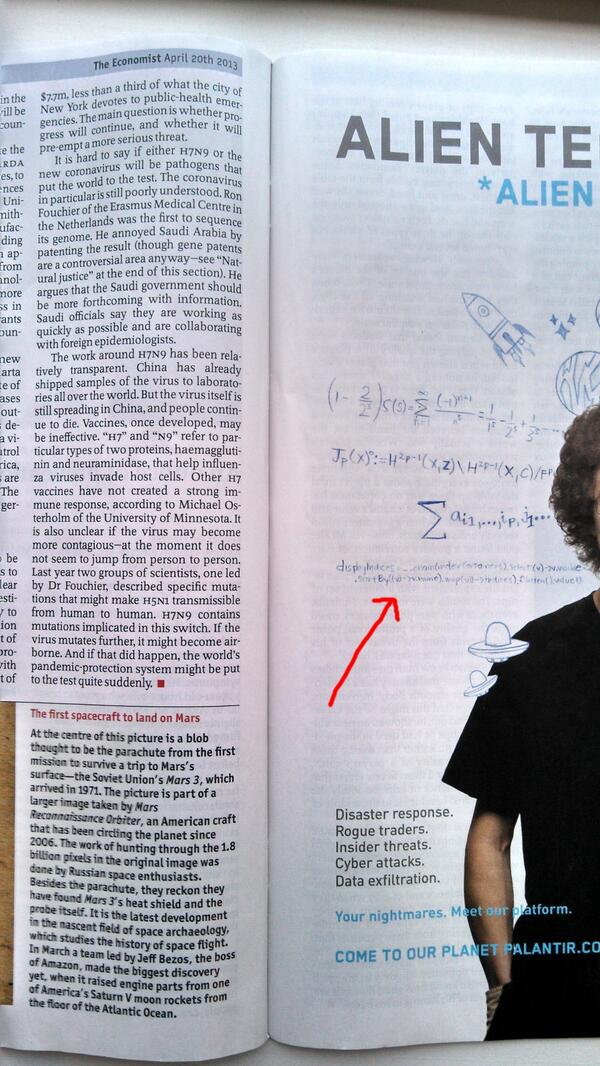 The Economist April 20th 2013
in the
will be
coun-
e the
RDA
es, to
ences
Uni-
mith-
ufac-
ding
n ap-
from
nnol-
more
ss in
rants
oun-
new
arta
te of
ases
out-
s de-
a vi-
ntrol
rica,
s are
The
ger-
o be
s to
lear
esti-
y to
ion
t of
pro-
with
t of
$7.7m, less than a third of what the city of
New York devotes to public-health emer-
gencies. The main question is whether pro-
gress will continue, and whether it will
pre-empt a more serious threat.
It is hard to say if either H7N9 or the
new coronavirus will be pathogens that
put the world to the test. The coronavirus
in particular is still poorly understood. Ron
Fouchier of the Erasmus Medical Centre in
the Netherlands was the first to sequence
its genome. He annoyed Saudi Arabia by
patenting the result (though gene patents
are a controversial area anyway—see "Nat-
ural justice" at the end of this section). He
argues that the Saudi government should
be more forthcoming with information.
Saudi officials say they are working as
quickly as possible and are collaborating
with foreign epidemiologists.
The work around H7N9 has been rela-
tively transparent. China has already
shipped samples of the virus to laborato-
ries all over the world. But the virus itself is
still spreading in China, and people contin-
ue to die. Vaccines, once developed, may
be ineffective. "H7" and "N9" refer to par-
ticular types of two proteins, haemaggluti-
nin and neuraminidase, that help influen-
za viruses invade host cells. Other H7
vaccines have not created a strong im-
mune response, according to Michael Os-
terholm of the University of Minnesota. It
is also unclear if the virus may become
more contagious—at the moment it does
not seem to jump from person to person.
Last year two groups of scientists, one led
by Dr Fouchier, described specific muta-
tions that might make H5N1 transmissible
from human to human. H7N9 contains
mutations implicated in this switch. If the
virus mutates further, it might become air-
borne. And if that did happen, the world's
pandemic-protection system might be put
to the test quite suddenly. ■
The first spacecraft to land on Mars
At the centre of this picture is a blob
thought to be the parachute from the first
mission to survive a trip to Mars's
surface—the Soviet Union's Mars 3, which
arrived in 1971. The picture is part of a
larger image taken by Mars
Reconnaissance Orbiter, an American craft
that has been circling the planet since
2006. The work of hunting through the 1.8
billion pixels in the original image was
done by Russian space enthusiasts.
Besides the parachute, they reckon they
have found Mars 3's heat shield and the
probe itself. It is the latest development
in the nascent field of space archaeology,
which studies the history of space flight.
In March a team led by Jeff Bezos, the boss
of Amazon, made the biggest discovery
yet, when it raised engine parts from one
of America's Saturn V moon rockets from
the floor of the Atlantic Ocean.
ALIEN TE
*ALIEN
(1 - 2/2ˢ) ζ(s) = ∑ (-1)ⁿ⁺¹/nˢ = 1/1ˢ - 1/2ˢ + 1/3ˢ ...
Jₚ(x)⁰:= H²ᵖ⁻¹(X,Z) \ H²ᵖ⁻¹(X,C)/Fᵖ
∑ aᵢ₁,...,iₚ, j₁...
Disaster response.
Rogue traders.
Insider threats.
Cyber attacks.
Data exfiltration.
Your nightmares. Meet our platform.
COME TO OUR PLANET PALANTIR.CO